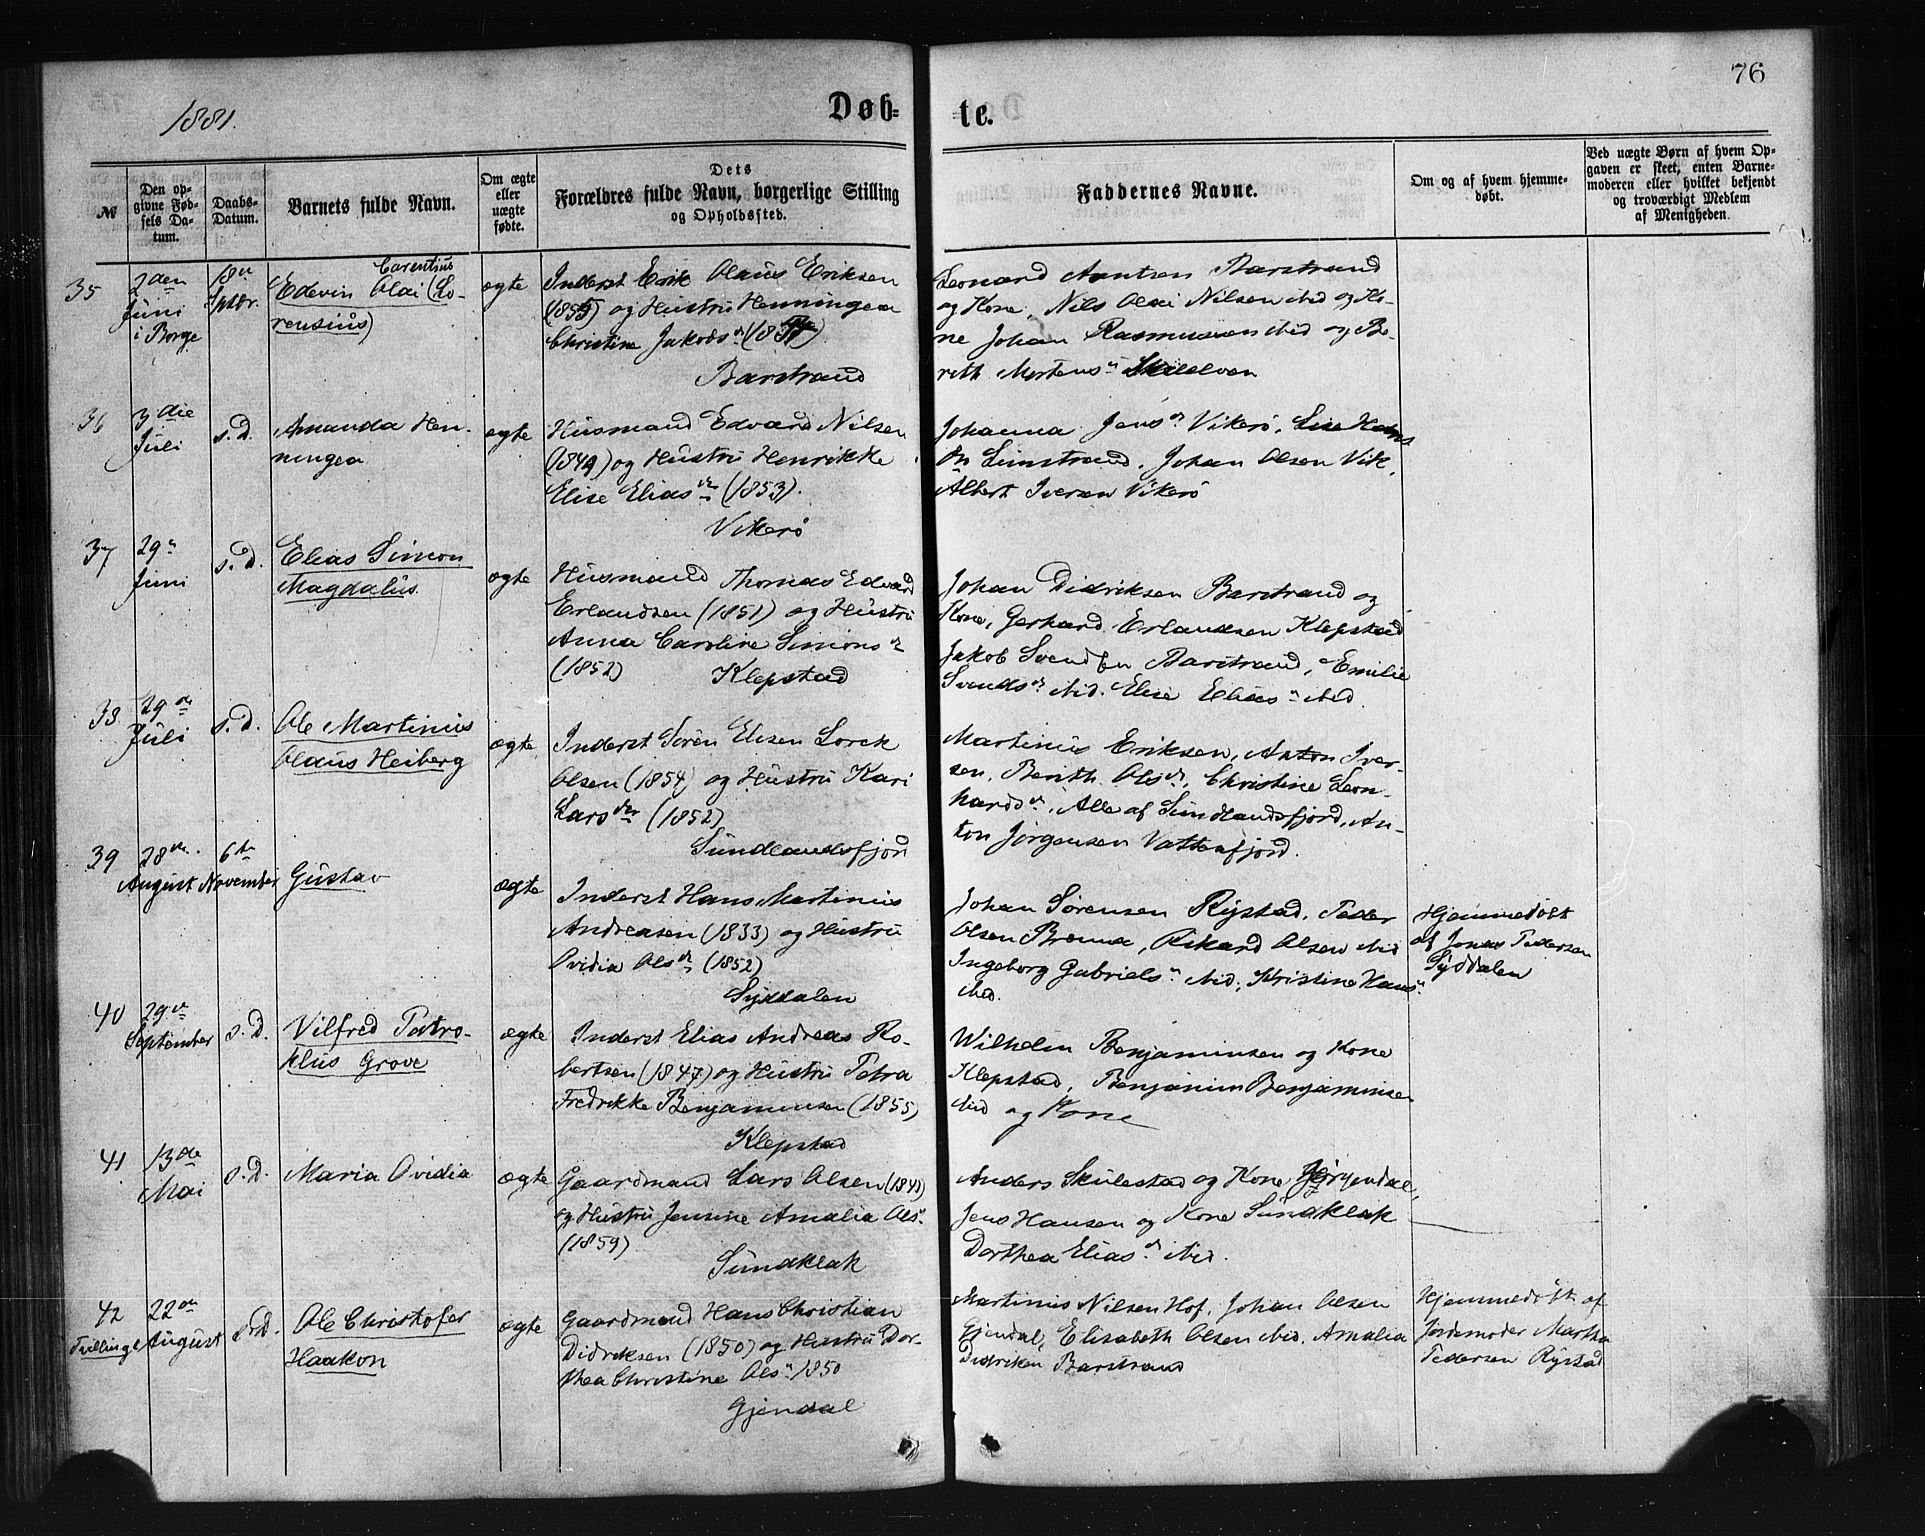 76
1881.
Døb-
te.
№
Den op-
givne Fød-
sels Da-
tum.
Daabs-
Datum.
Barnets fulde Navn.
Om ægte
eller
uægte
fødte.
Dets
Forældres fulde Navn, borgerlige Stilling
og Opholdssted.
Faddernes Navne.
Om og af hvem hjemme-
døbt.
Ved uægte Børn af hvem Op-
gaven er skeet, enten Barne-
moderen eller hvilket bekjendt
og troværdigt Medlem
af Menigheden.
35
2den
Juni
i Borge
18de
Sptbr.
Carentius
Edevin Olai (Lo-
rensius)
ægte
Inderst Erik Olaus Eriksen
(1855) og Hustru Henningea
Christine Jakobsdr
Barstrand
Leonard Arntsen Barstrand
og Kone, Nils Olai Nilsen ibid og Ko-
ne Johan Rasmussen ibid og Be-
reth Mortensdr
36
3die
Juli
s.D.
Amanda Hen-
ningea
ægte
Husmand Edvard Nilsen
(1849) og Hustru Henrikke
Elise Eliasdtr (1853).
Vikerø
Johanna Jensdr Vikerø, Lise Hans
dr Limstrand, Johan Olsen Vik,
Albert Iversen Vikerø
37
29de
Juni
s.D.
Elias Simon
Magdalus.
ægte
Husmand Thomas Edvard
Erlandsen (1851) og Hustru
Anna Caroline Simonsdr
(1852) Klepstad
Johan Didriksen Barstrand og
Kone, Gerhard Erlandsen Klepstad
Jakob Svendsen Barstrand, Emilie
Svendsdr ibid. Elise Eliasdr ibid.
38
29de
Juli
s.D.
Ole Martinius
Olaus Heiberg
ægte
Inderst Søren Elisen Lorck
Olsen (1854) og Hustru Kari
Larsdtr (1852)
Sundlandsfjord
Martinus Eriksen, Anton Iver-
sen, Berith Olsdr, Christine Leon-
hardsdr, Alle af Sundlandsfjord, An-
ton Jørgensen Vatterfjord.
39
28de
August
6te
November
Gustav
ægte
Inderst Hans Martinius
Andreasen (1833) og Hustru
Ovidia Olsdr (1852)
Syddalen
Johan Sørensen Rystad, Peder
Olsen Brenna, Rikard Olsen ibid
Ingeborg Gabrielsdr ibid, Kristine Hansdr
ibid.
Hjemmedøbt
af Jonas Pedersen
Syddalen
40
29de
September
s.D.
Vilfred Patro-
klus Grove
ægte
Inderst Elias Andreas Ro-
bertsen (1847) og Hustru Petra
Fredrikke Benjaminsen (1855)
Klepstad
Wilhelm Benjaminsen og Kone
Klepstad, Benjamin Benjaminsen
ibid og Kone
41
13de
Mai
s.D.
Maria Ovidia
ægte
Gaardmand Lars Olsen
og Hustru Jensine Amalia Olsdr
(1859)
Sundklak
Anders Skulestad og Kone
Jens Hansen og Kone Sundklak
Dorthea Eliasdr ibid.
42
Tvillinge
22de
August
s.D.
Ole Christofer
Haakon
ægte
Gaardmand Hans Christian
Didriksen (1850) og Hustru Dor-
thea Christine Olsdr 1850
Gjendal
Martinus Nilsen Hof, Johan Olsen
Gjendal, Elisabeth Olsen ibid, Amalia
Didriksen Barstrand
Hjemmedøbt af
Jordemoder Martha
Pedersen Rystad